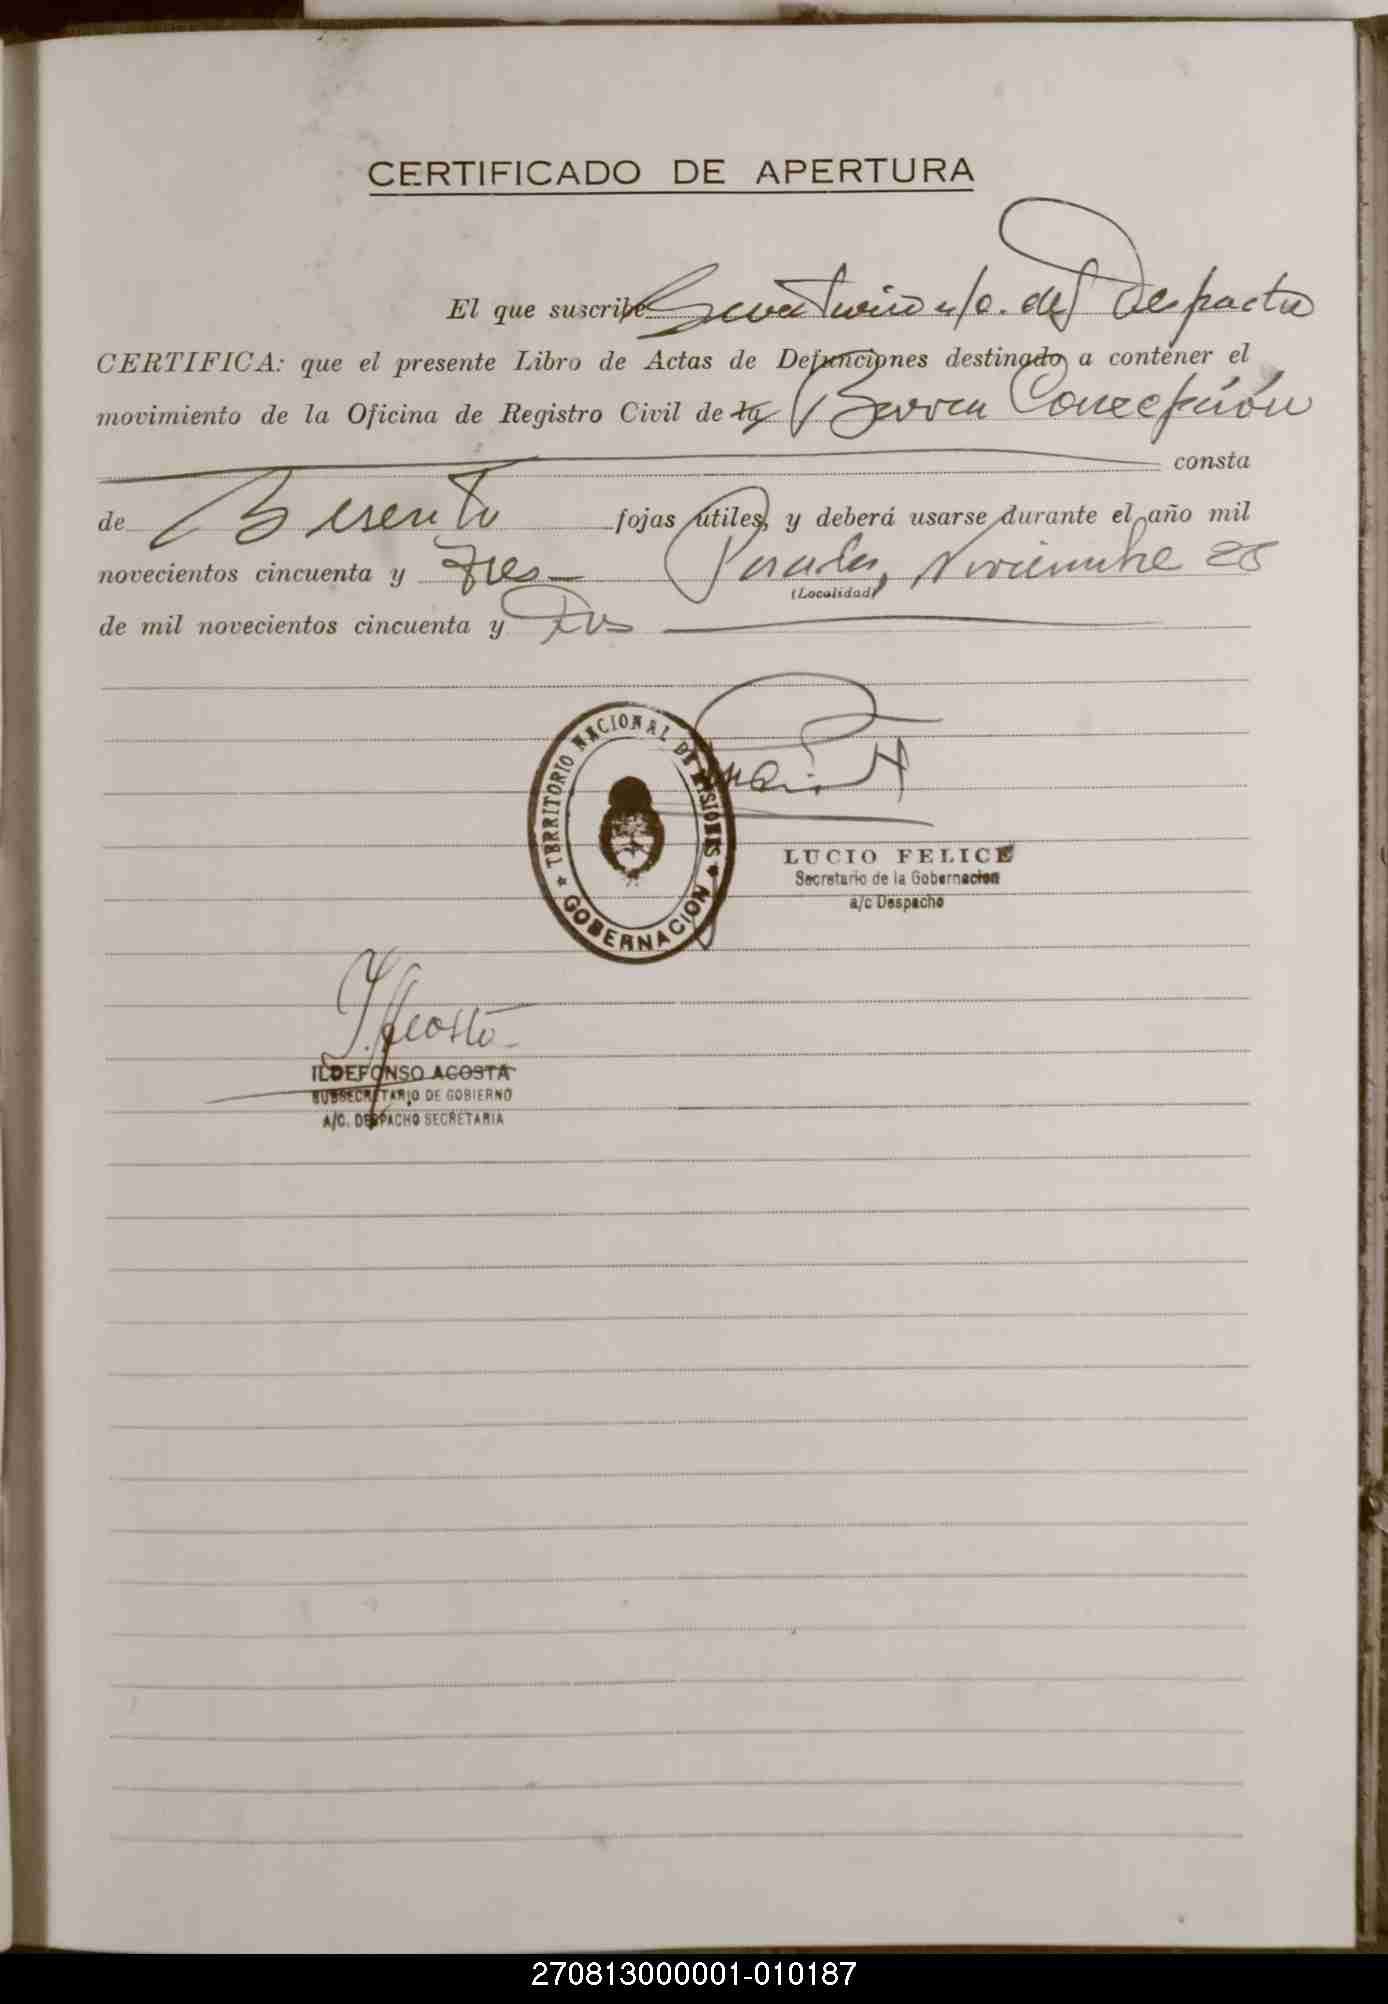 CERTIFICADO DE APERTURA
El que suscribe Secretario a/c. del Despacho
CERTIFICA: que el presente Libro de Actas de Defunciones destinado a contener el
movimiento de la Oficina de Registro Civil de la Barra Concepción
consta
de fojas útiles, y deberá usarse durante el año mil
novecientos cincuenta y tres Posadas, Noviembre 25
(Localidad)
de mil novecientos cincuenta y dos
TERRITORIO NACIONAL DE MISIONES
GOBERNACION
LUCIO FELICE
Secretario de la Gobernacion
a/c Despacho
I. Acosta
ILDEFONSO ACOSTA
SUBSECRETARIO DE GOBIERNO
A/C. DESPACHO SECRETARIA
270813000001-010187